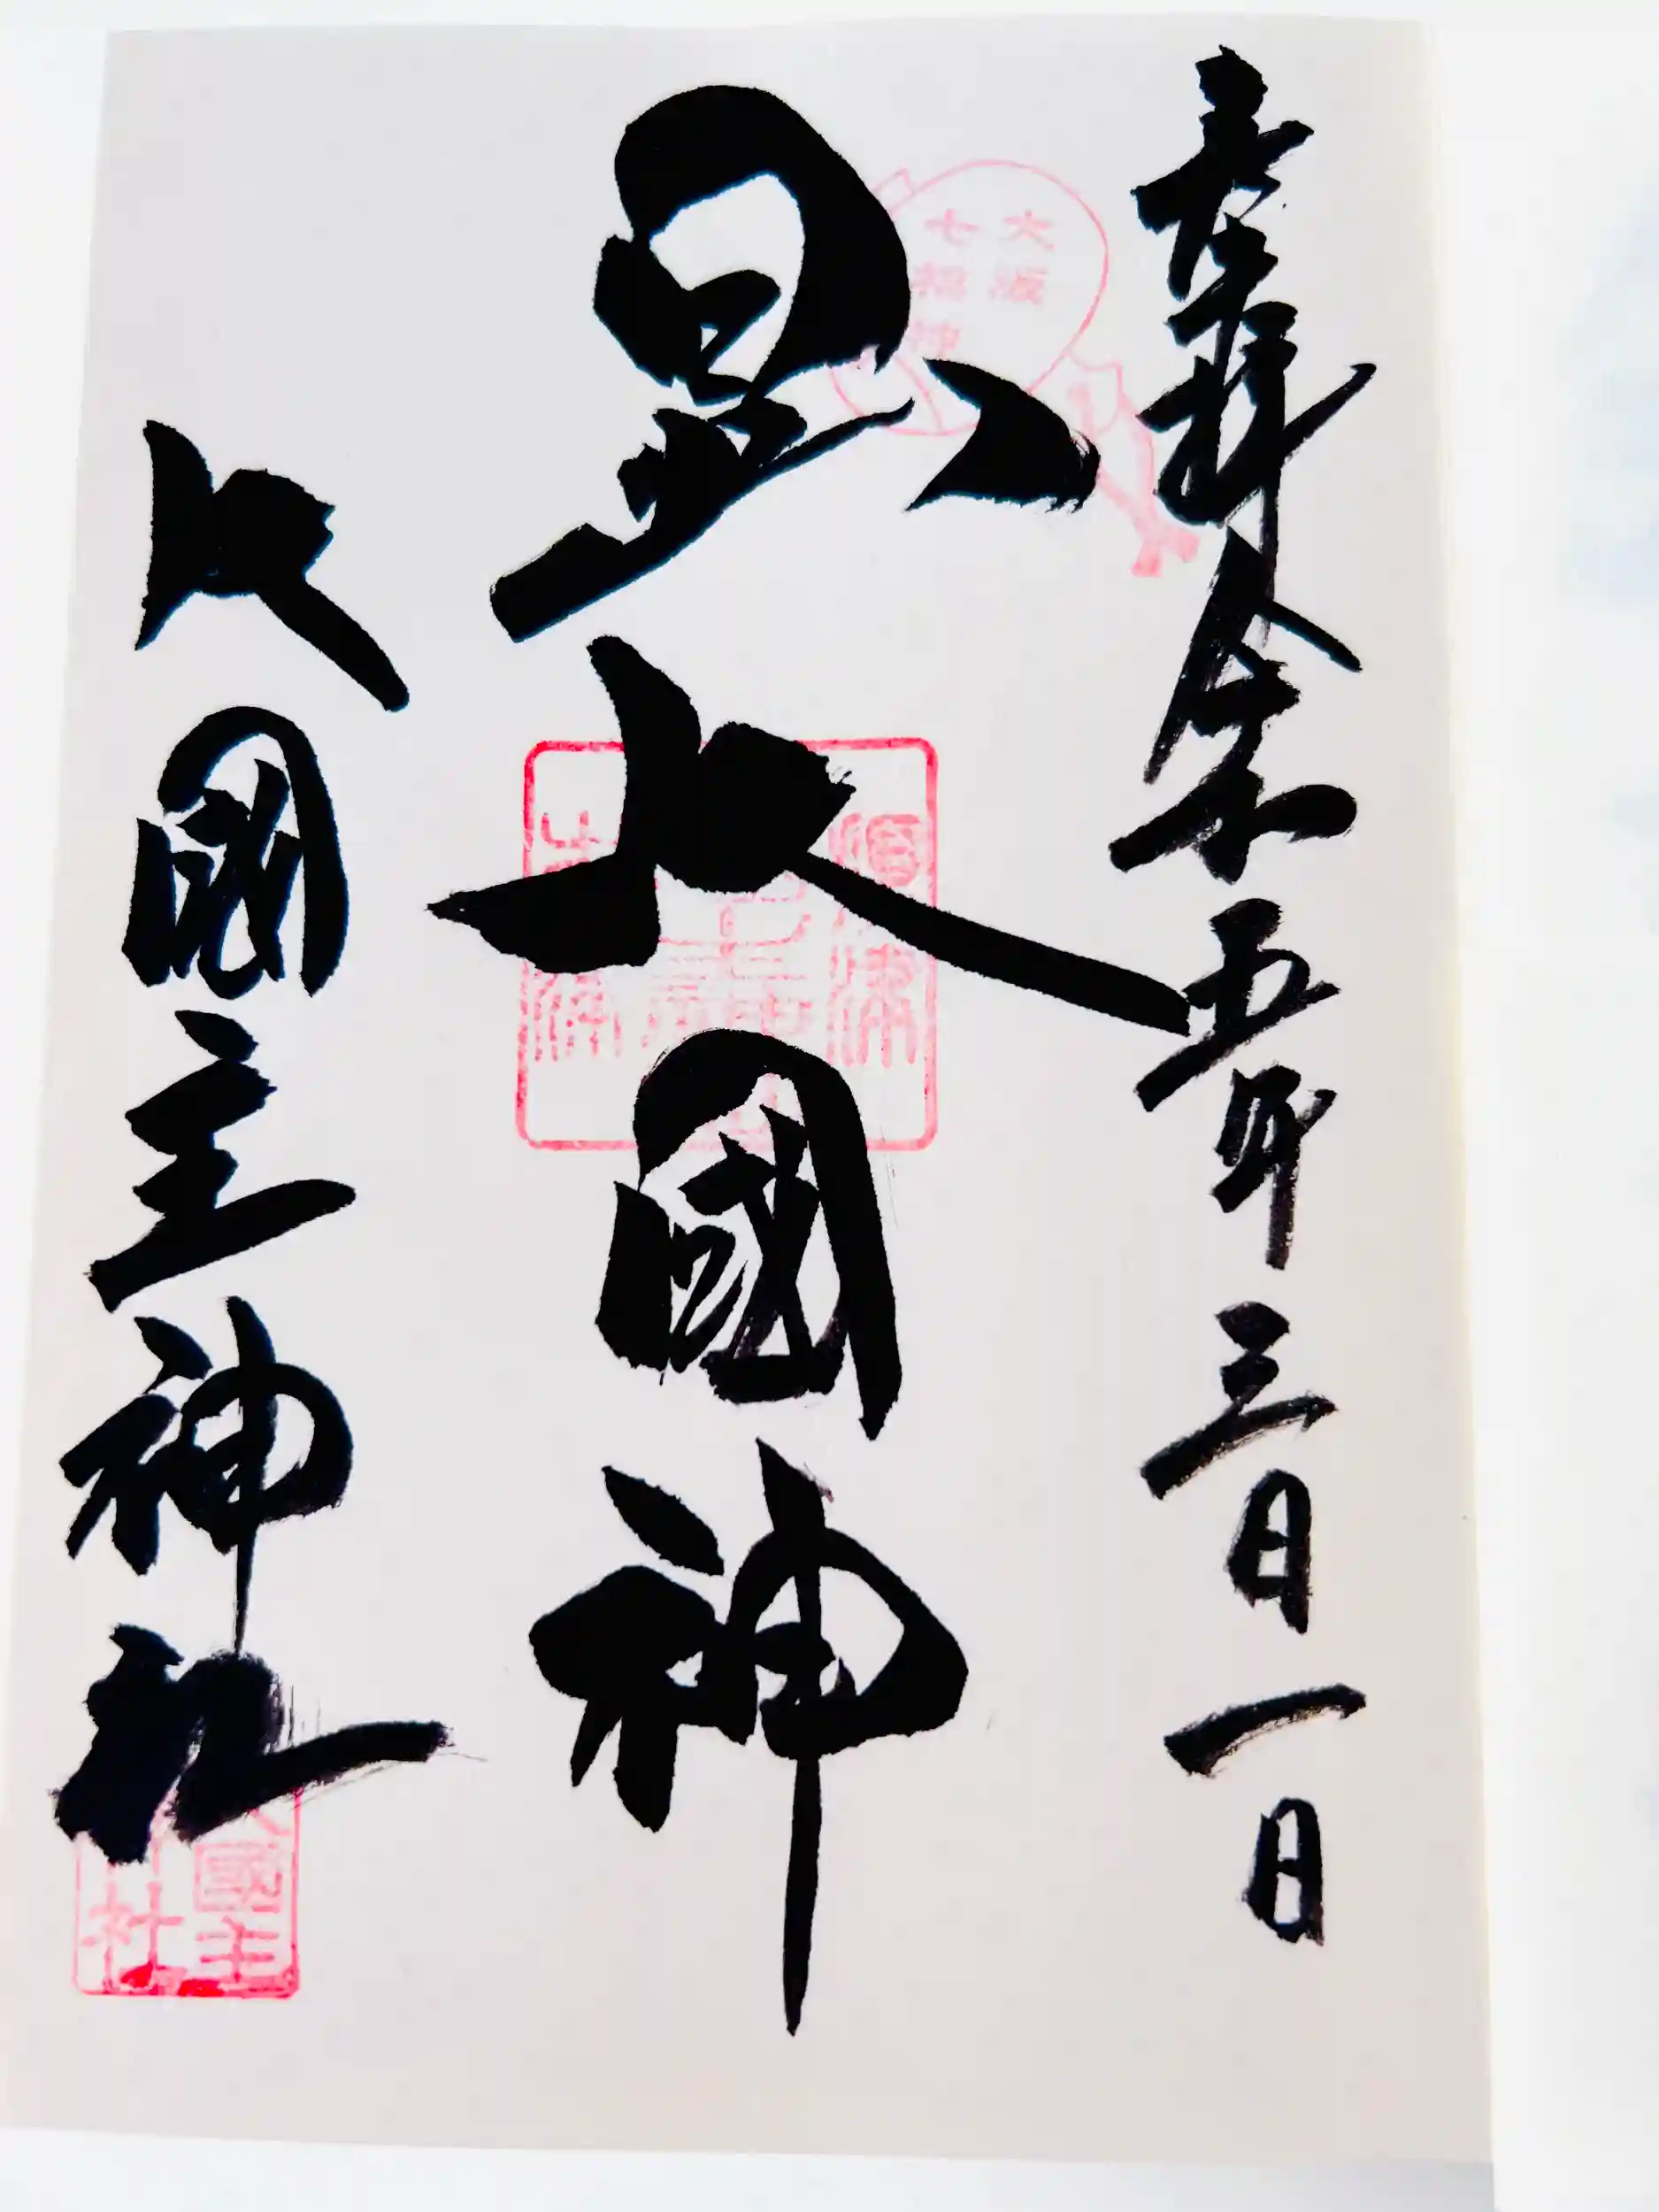 奉拝 令和五年 三月 一日
大阪
七福神
日出大國神
大國主神社
國主
社